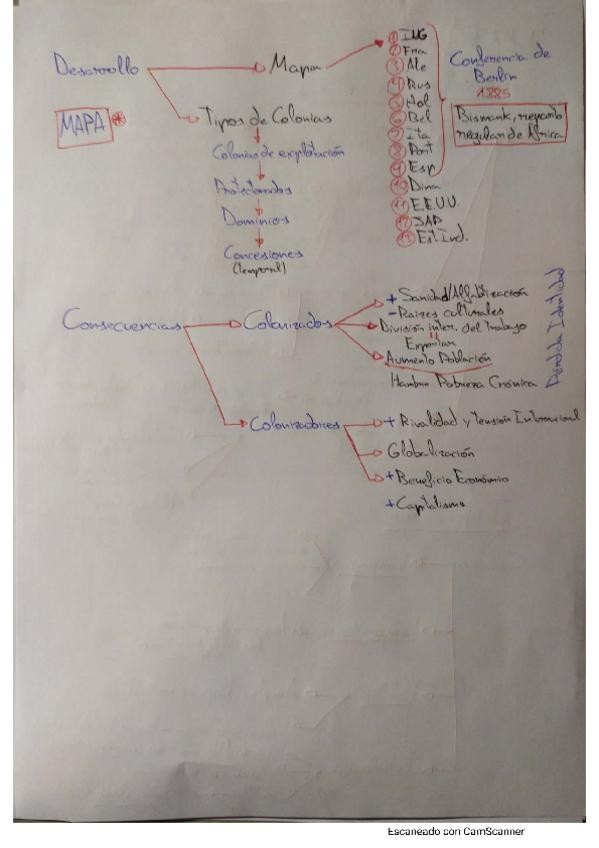 Desarrollo
Mapa
MAPA *
Tipos de Colonias
Colonias de explotación
Protectorados
Dominios
Concesiones
(temporal)
① ING
② Fra
③ Ale
④ Rus
⑤ Hol
⑥ Bel
⑦ Ita
⑧ Port
⑨ Esp
⑩ Dina
⑪ E.E.U.U.
⑫ JAP
⑬ Est. Ind.
Conferencia de
Berlín
1885
Bismark, reparto
regular de África
Consecuencias
Colonizados
+ Sanidad/Alfabetización
- Raíces culturales
División inter. del trabajo
Aumento Población
Hambre Pobreza Crónica
Pérdida Identidad
Colonizadores
+ Rivalidad y Tensión Internacional
Globalización
+ Beneficio Económico
+ Capitalismo
Escaneado con CamScanner